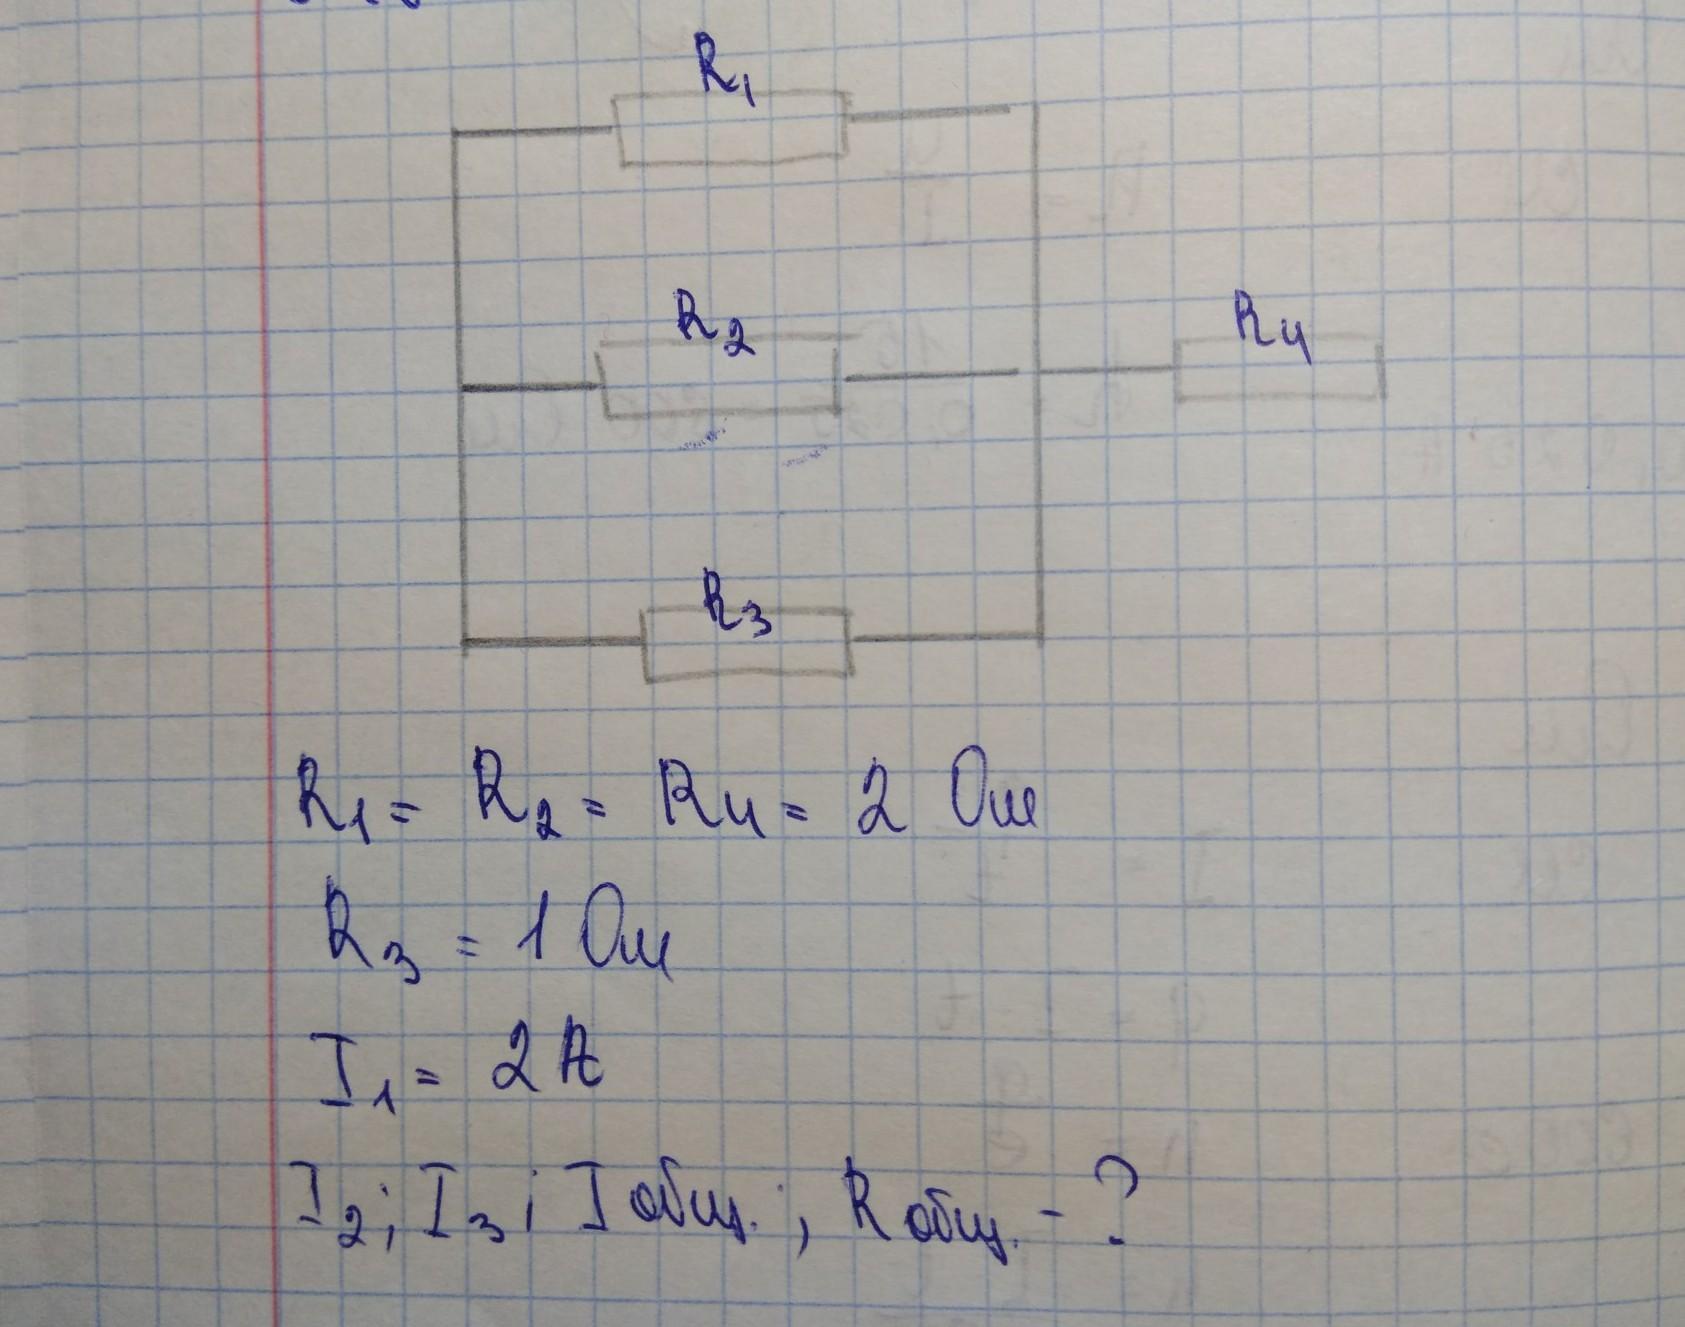 R1
R2
R4
R3
R1 = R2 = R4 = 2 Ом
R3 = 1 Ом
I1 = 2 А
I2; I3; I общ.; R общ. - ?